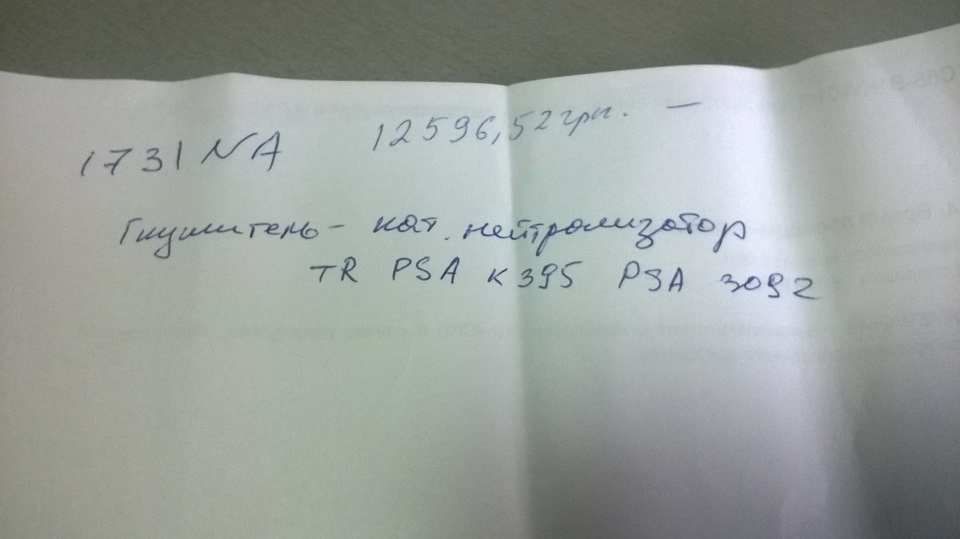 1731 NA 12596,52 грн. —
Глушитель - кат. нейтрализатор
TR PSA K395 PSA 3092